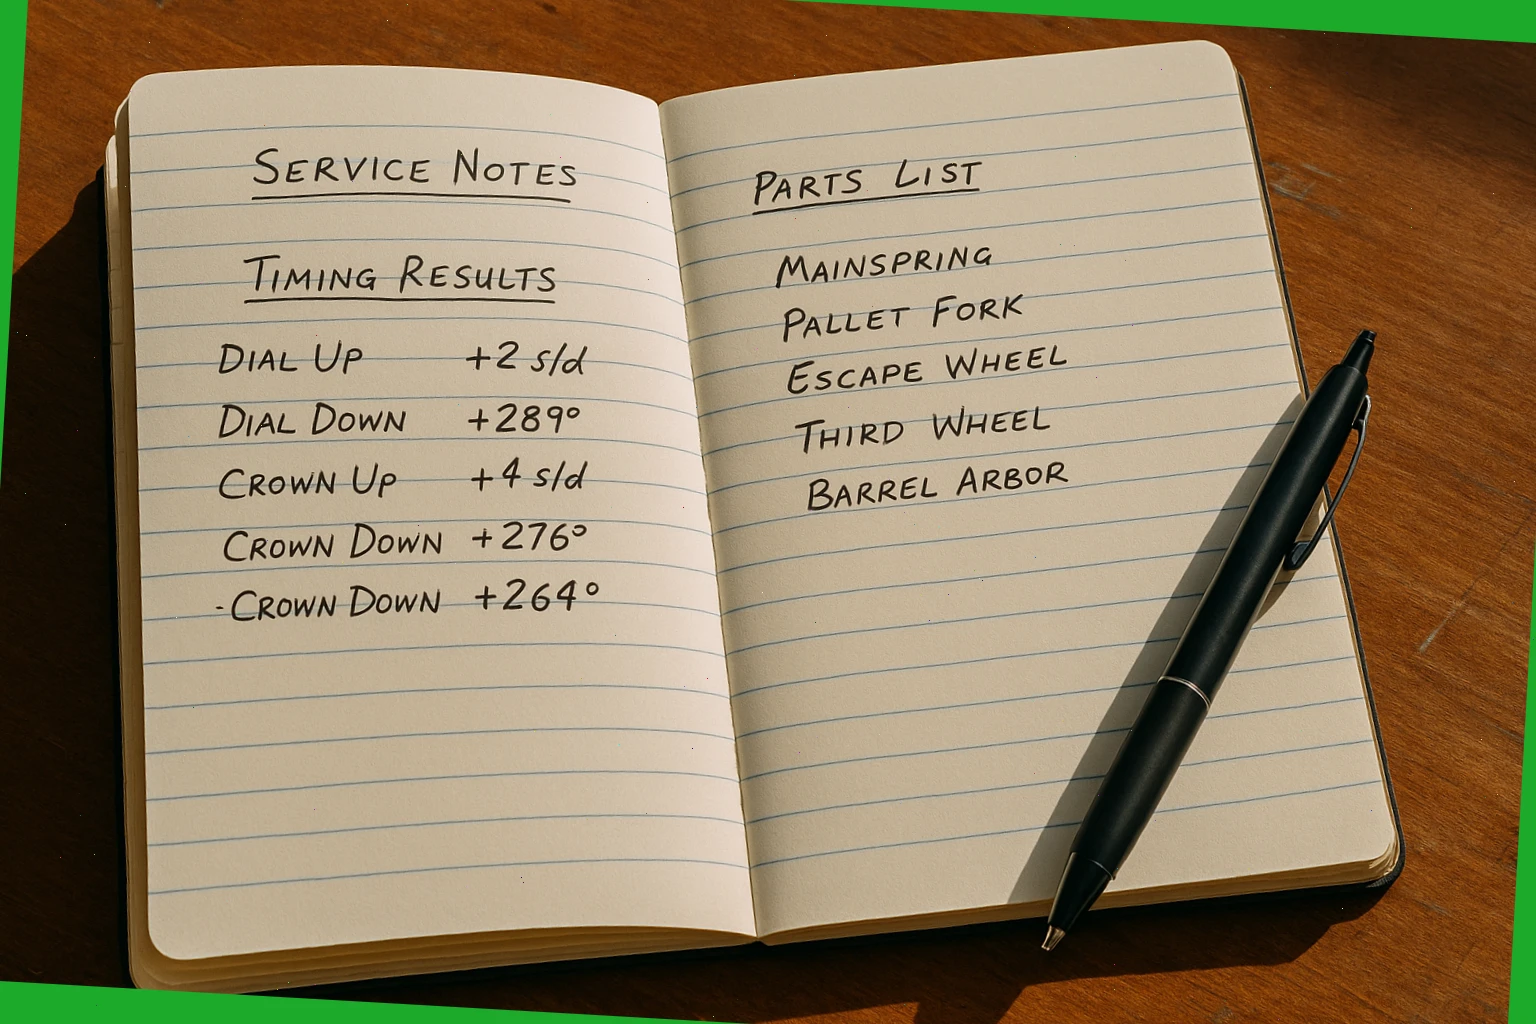 SERVICE NOTES
TIMING RESULTS
DIAL UP +2 s/d
DIAL DOWN +289°
CROWN UP +4 s/d
CROWN DOWN +276°
-CROWN DOWN +264°
PARTS LIST
MAINSPRING
PALLET FORK
ESCAPE WHEEL
THIRD WHEEL
BARREL ARBOR